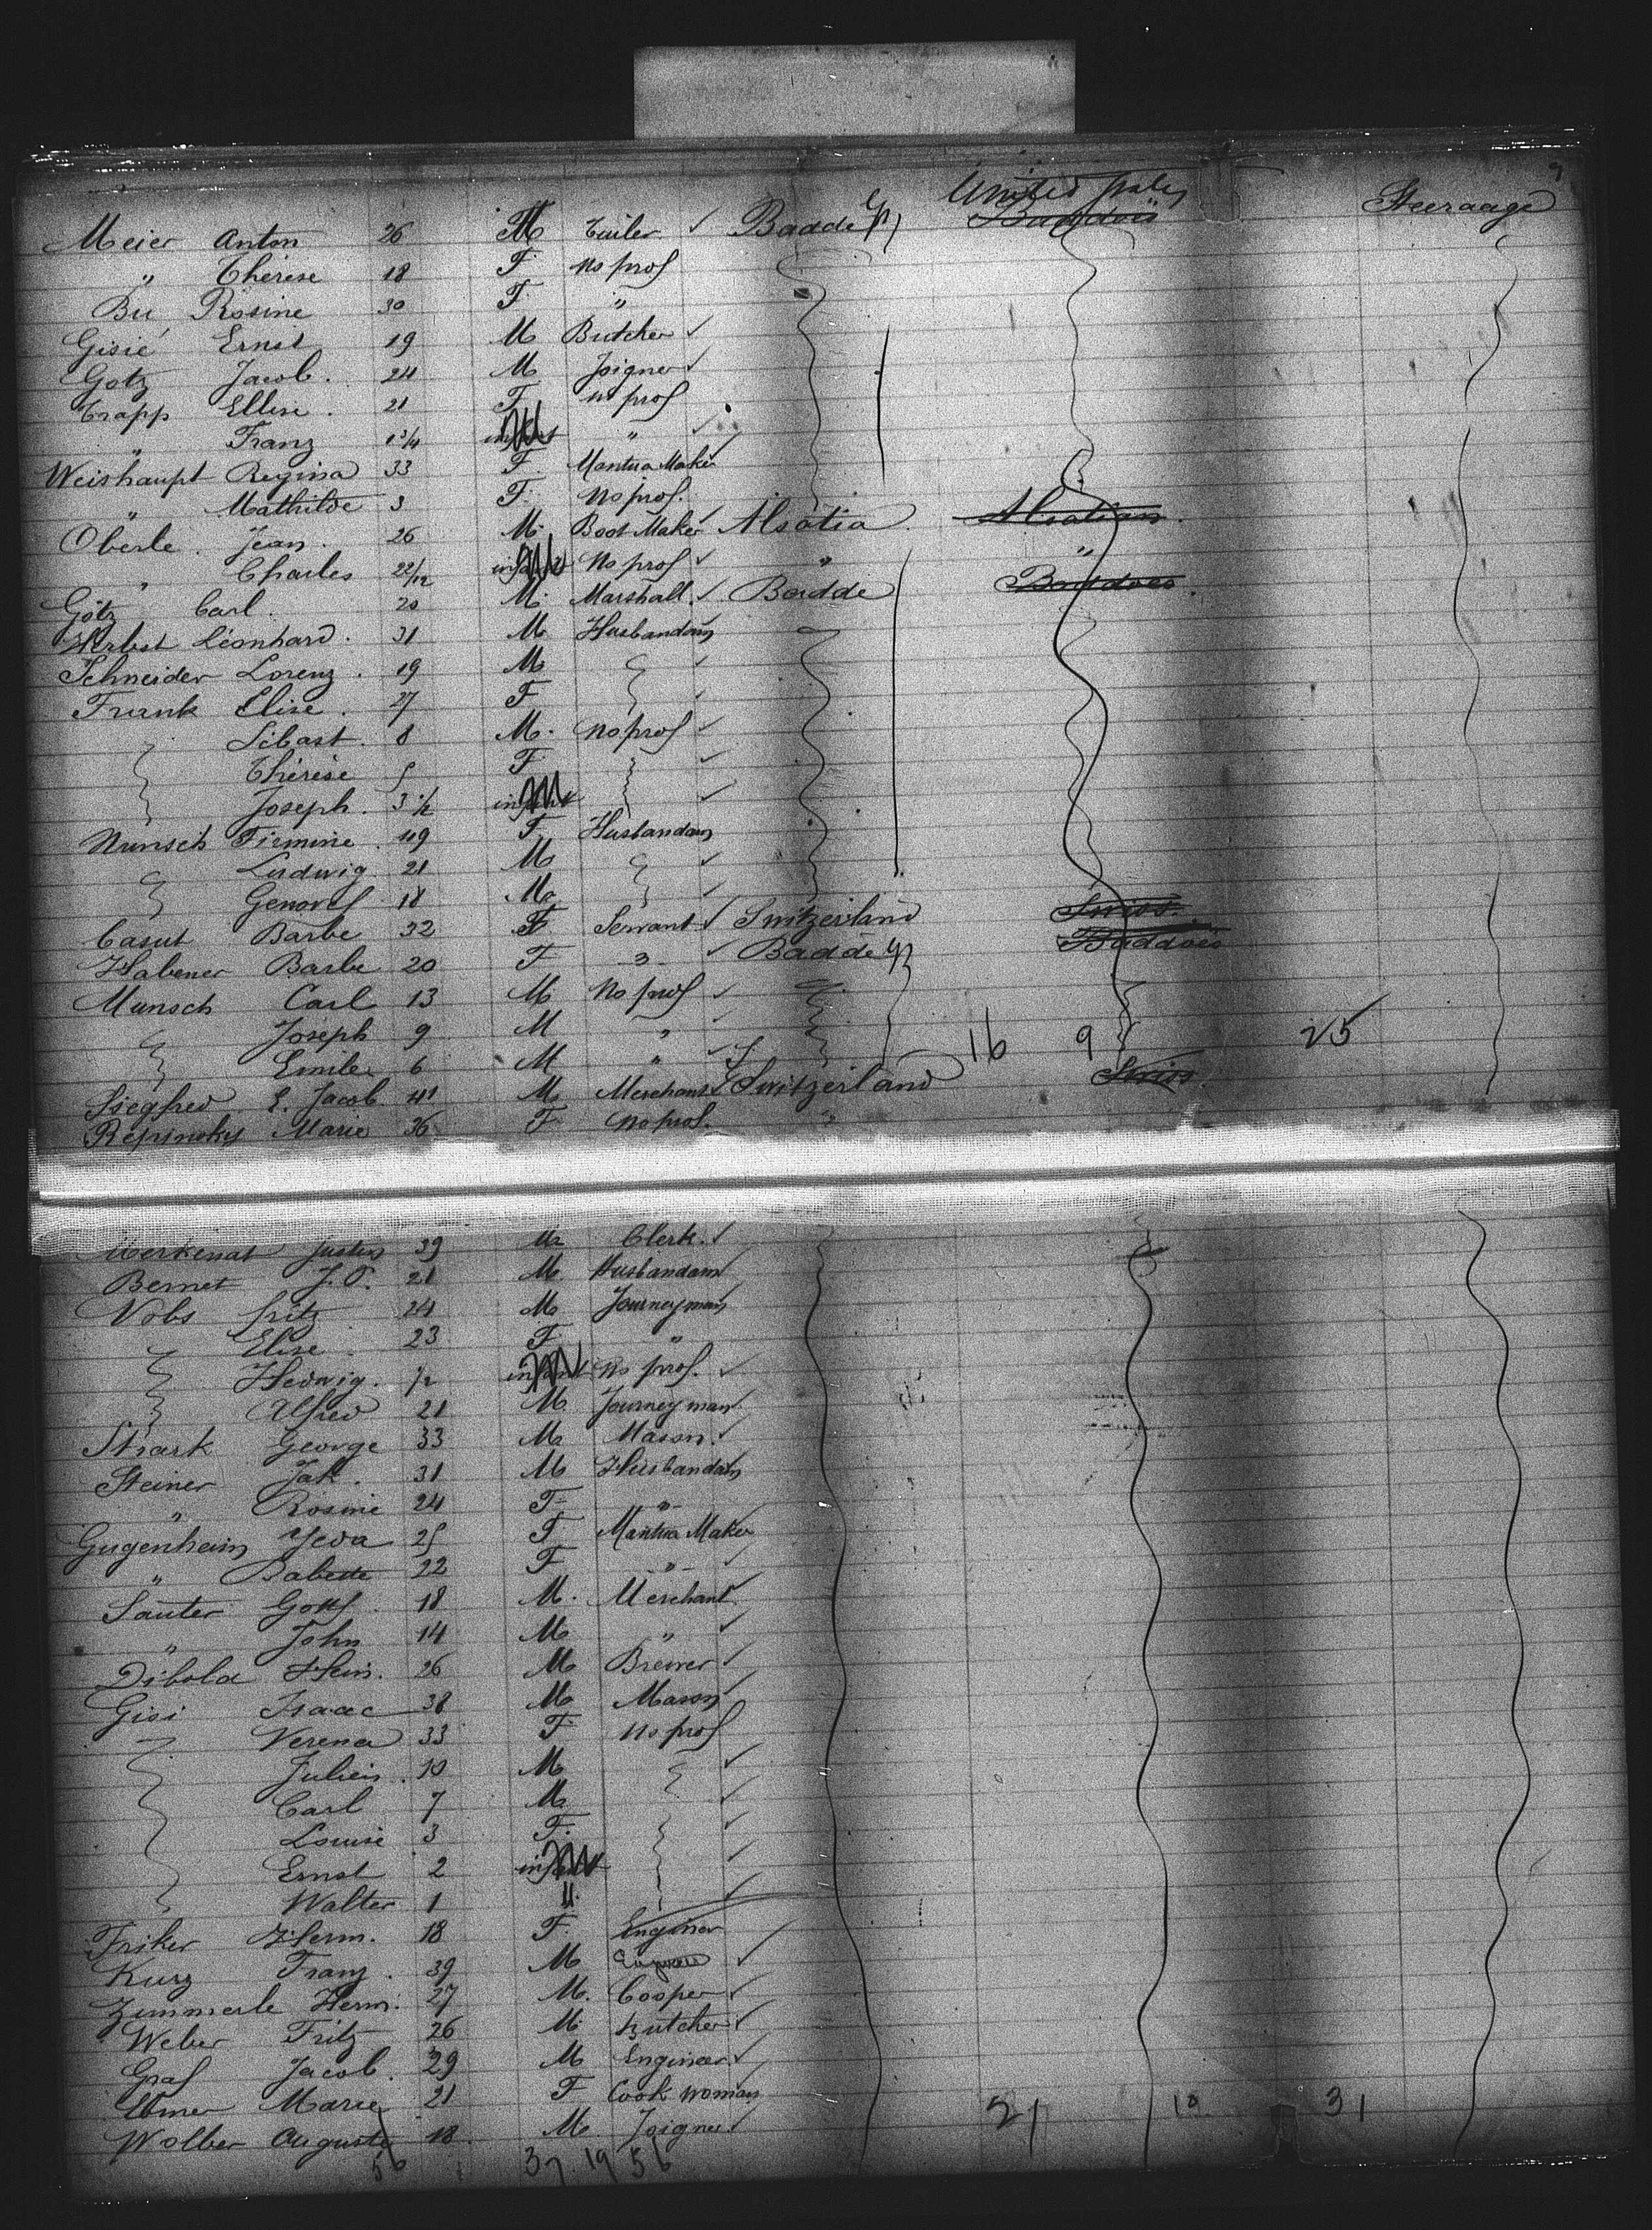 9
United States
Meier Anton 26 M Tuiler ✓ Badde Baddois Steeraage
" Thérese 18 F no prof
Bu Rosine 30 F "
Gisié Ernst 19 M Butcher ✓
Gotz Jacob. 24 M Joigner ✓
Trapp Ellise. 21 F no prof
" Franz 1 3/4 infant "
Weishaupt Regina 33 F. Mantua Maker
" Mathilde 3 F. No prof.
Oberle. Jean. 26 M. Boot Maker Alsatia. Alsatian.
" Charles 22/12 infant No prof ✓ " "
Götz Carl. 20 M. Marshall. ✓ Badde Baddois.
Herbst Léonhard. 31 M Husbandam
Schneider Lorenz. 19 M ✓
Frank Elise. 27 F ✓
Sébast. 8 M. No prof ✓
Thérèse 5 F ✓
Joseph. 3 1/2 infant ✓
Munsch Firmine. 49 F. Husbandam
Ludwig 21 M ✓
Genovef 18 M ✓
Casut Barbe 32 F Servant ✓ Switzerland Swiss.
Habener Barbe 20 F " ✓ Badde Baddois
Munsch Carl 13 M No prof ✓
Joseph 9 M "
Emile 6 M " ✓ 16 9 25
Siegfred E. Jacob. 41 M Merchant ✓ Switzerland Swiss.
Repinsky Marie 36 F No prof. "
Merkenat Justin 39 M Clerk. ✓
Bernet J. P. 21 M. Husbandam
Vobs fritz 24 M Journeyman
Elise 23 F "
Hedwig. 1/2 infant No prof. ✓
Alfred 21 M. Journeyman.
Stark George 33 M Mason. ✓
Steiner Jak. 31 M Husbandam
" Rosine 24 F "
Gugenheim Yeda 25 F Mantua Maker
" Babette 22 F " ✓
Sauter Gottf. 18 M. Merchant
" John 14 M " ✓
Dibold Hein. 26 M Brewer ✓
Gisi Isaac 38 M Mason
Verena 33 F No prof
Julien. 10 M ✓
Carl 7 M ✓
Louise 3 F. ✓
Ernst 2 infant ✓
Walter 1 " ✓
Friker Herm. 18 F. Enginer
Kurz Franz. 39 M ✓
Zimmerle Herm. 27 M. Cooper ✓
Weber Fritz 26 M Butcher ✓
Graf Jacob. 29 M Engineer. ✓
Marie 21 F Cook woman 21 10 31
Wolber Auguste 18. M Joigner ✓
56 37 19 56